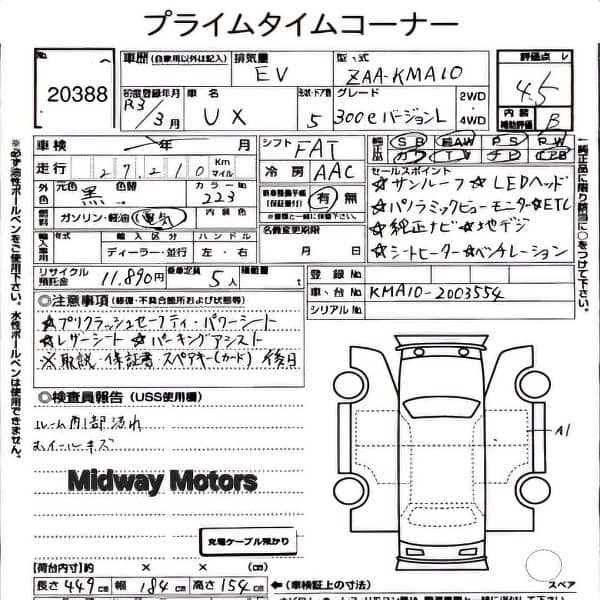 プライムタイムコーナー
No.
20388
車歴 (自家用以外は記入)
排気量
EV
型式
ZAA-KMA10
評価点
4.5
内装
補助評価
B
初度登録年月
R3/3月
車名
UX
形状・ドア数
5
グレード
300eバージョンL
2WD
4WD
車検 年 月
シフト FAT
純正品 SR AW PS PW
カワ TV ナビ エアB
走行 27,210 Km マイル
冷房 AAC
セールスポイント
外色 元色 黒 色替
カラーNo. 223
(保証書付) 有 無
☆サンルーフ ☆LEDヘッド
燃料 ガソリン・軽油 (電気)
内装色
※書類と一緒に保管下さい
☆パノラミックビューモニター ☆ETC
輸入車用 年式 輸入区分 ハンドル
名義変更期限
☆純正ナビ ☆地デジ
ディーラー・並行 左・右
月 日
☆シートヒーター ☆ベンチレーション
リサイクル預託金 11,890円
乗車定員 5人
積載量 t
登録No.
車台No. KMA10-2003554
シリアルNo.
◎注意事項 (修復・不具合箇所および状態等)
☆プリクラッシュセーフティ・パワーシート
☆レザーシート ☆パーキングアシスト
※取説・保証書 スペアキー(カード) 後日
◎検査員報告 (USS使用欄)
ルーム内部汚れ
ホイールキズ
A1
Midway Motors
充電ケーブル預かり
【荷台内寸】約 × × (cm)
長さ 449 cm 幅 184 cm 高さ 154 cm
←(車検証上の寸法)
スペア
※必ず油性ボールペンをご使用下さい。水性ボールペンは使用できません。
純正品に限り該当に○をつけて下さい。